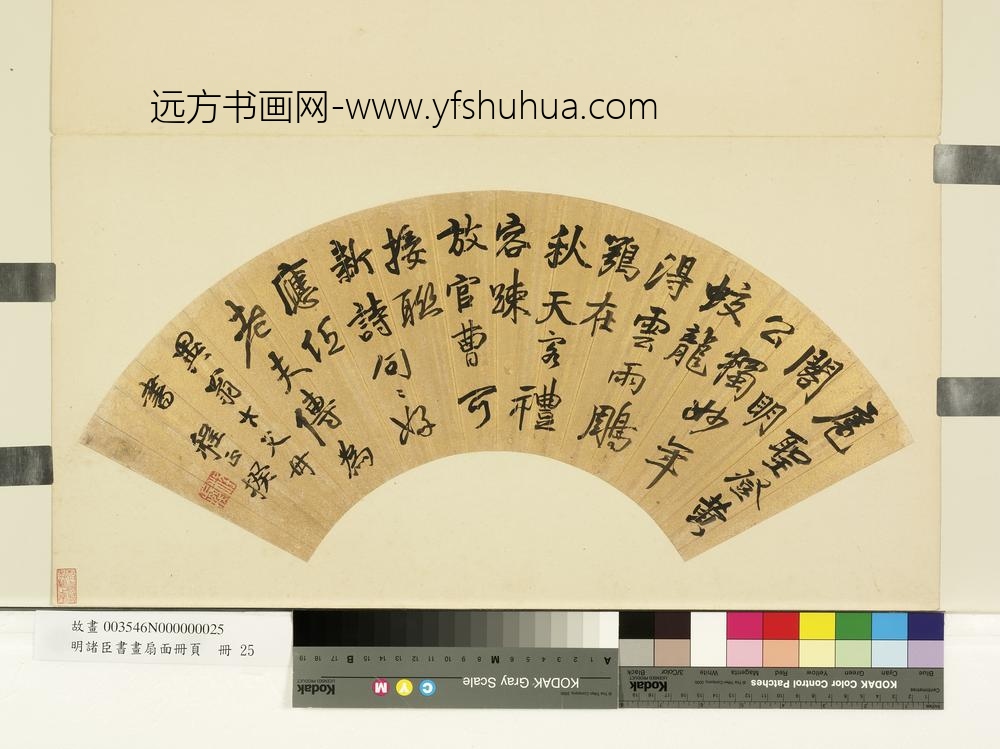 远方书画网-www.yfshuhua.com
扈聖登黃
閣明
公獨妙年
蛟龍
得雲雨鵰
鶚在
秋天客禮
容踈
放官曹可
接聯
新詩句〻好
應任
老夫傳為
翁大父母
書程正揆
故畫 003546N000000025
明諸臣書畫扇面冊頁 冊 25
Kodak
LICENSED PRODUCT
KODAK Gray Scale
C Y M
A 1 2 3 4 5 6 M 8 9 10 11 12 13 14 15 B 17 18 19
KODAK Color Control Patches
Blue Cyan Green Yellow Red Magenta White 3/Color Black
Kodak
LICENSED PRODUCT